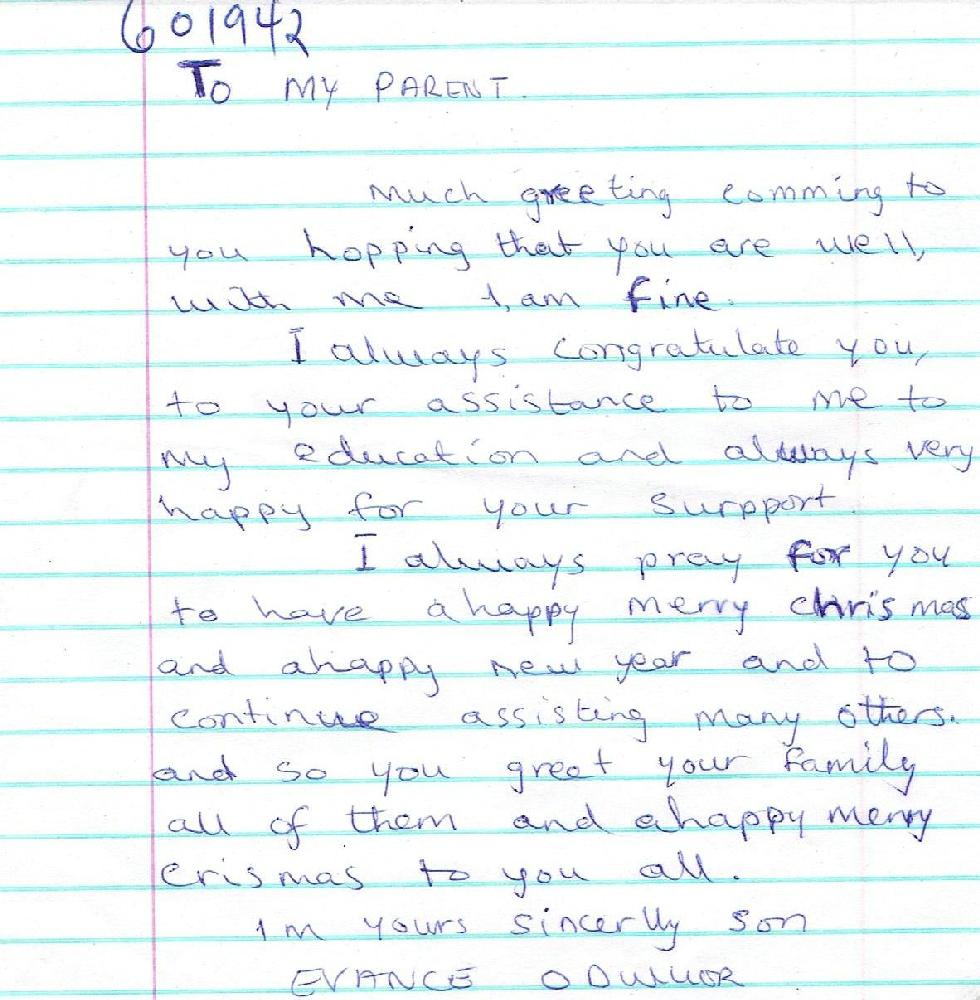 601942
To MY PARENT.
Much greeting comming to
you hopping that you are well,
with me I, am fine.
I always congratulate you,
to your assistance to me to
my education and always very
happy for your surpport.
I always pray for you
to have ahappy merry chrismas
and ahappy new year and to
continue assisting many others.
and so you greet your family
all of them and ahappy merry
crismas to you all.
Im yours sincerlly son
EVANCE ODUWOR